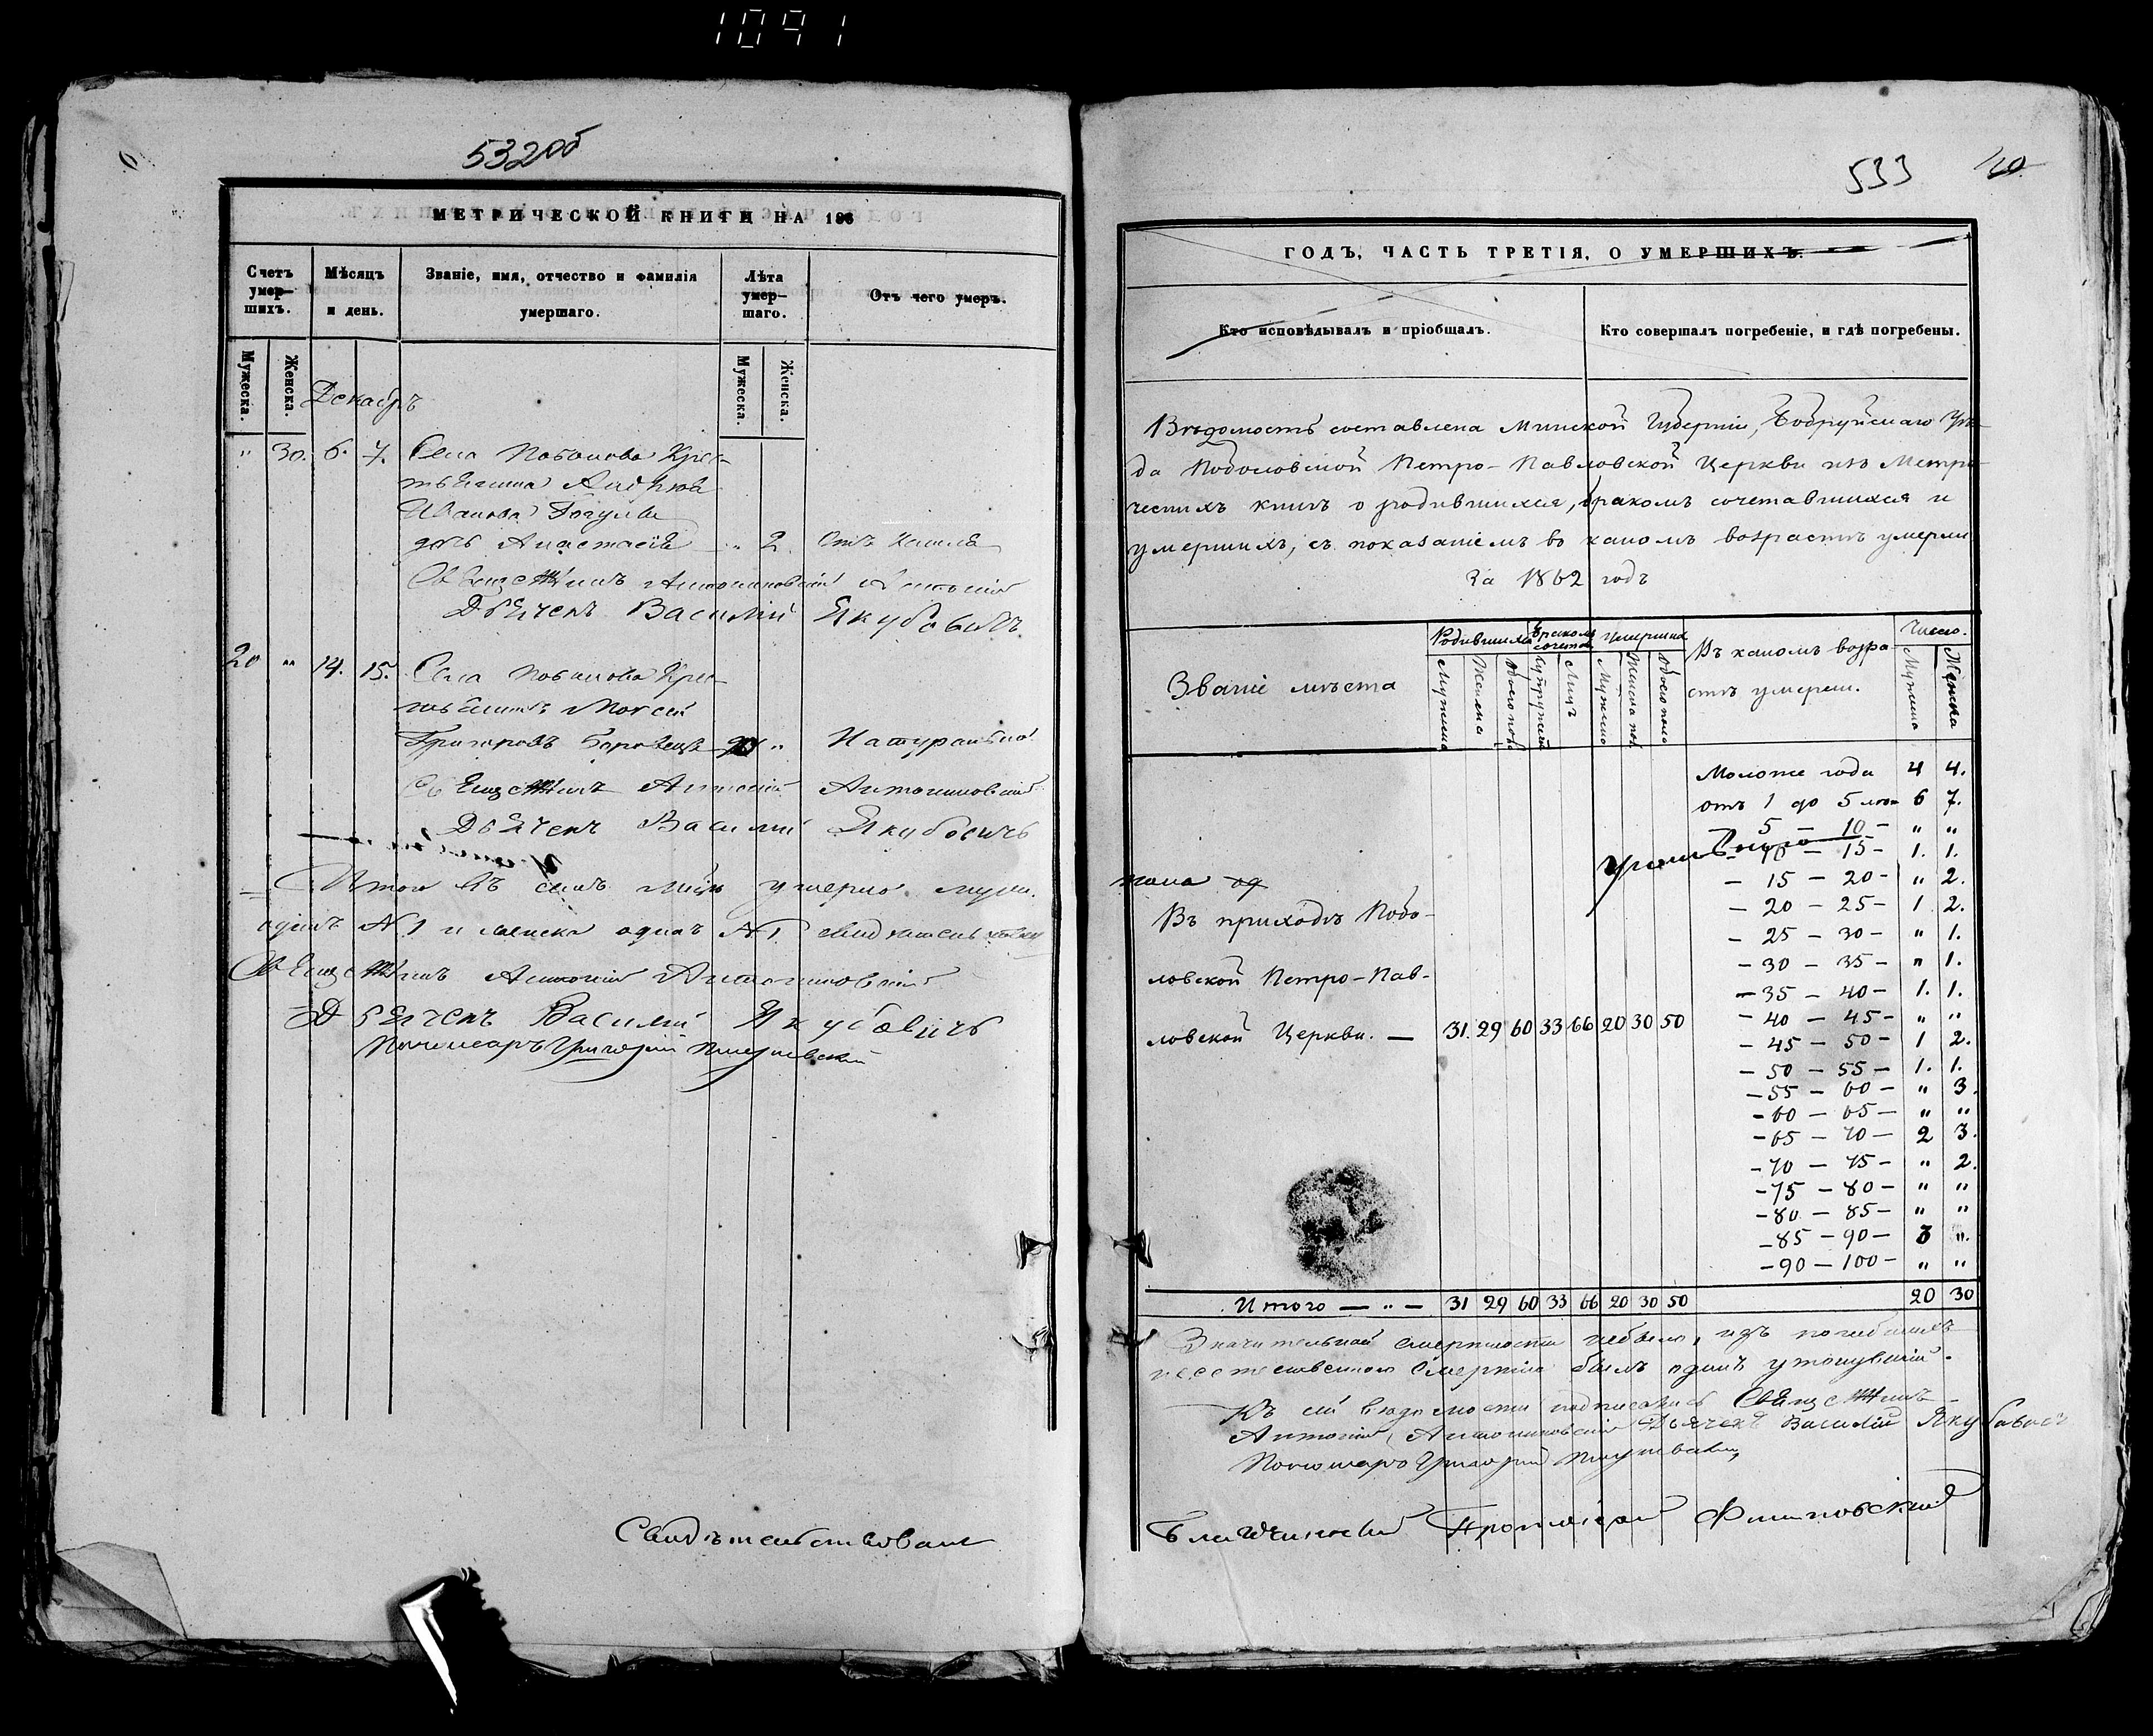 1091
532 об
МЕТРИЧЕСКОЙ КНИГИ НА 186
Счетъ умер-шихъ.
Мѣсяцъ и день.
Званіе, имя, отчество и фамилія умершаго.
Лѣта умер-шаго.
Отъ чего умеръ.
Мужеска.
Женска.
Мужеска.
Женска.
Декабрь
" 30. 6. 7. Села Поболова Крес-
тьянина Андрея
Иванова
дочь Анастасія " 2. Отъ Кашля
Священникъ Антониновскій Антоній
Дьячекъ Василій Якубовичъ
20 " 14. 15. Села Поболова Крес-
тьянинъ Моисей
Григоровъ " Натурально
Священникъ Антоній Антониновскій
Дьячекъ Василій Якубовичъ
Итого въ семъ м-цѣ умерло муж.
одинъ №1 и женска одна №1
Священникъ Антоній Антониновскій
Дьячекъ Василій Якубовичъ
Пономарь Григорій
Свидѣтельствовалъ
533
ГОДЪ, ЧАСТЬ ТРЕТІЯ, О УМЕРШИХЪ.
Кто исповѣдывалъ и пріобщалъ.
Кто совершалъ погребеніе, и гдѣ погребены.
Вѣдомость составлена Минской Губерніи, Бобруйскаго Уѣз-
да Поболовской Петро-Павловской Церкви изъ Метри-
ческихъ книгъ о родившихся, бракомъ сочетавшихся и
умершихъ, съ показаніемъ въ какомъ возрастѣ умерли
За 1862 годъ
Званіе мѣста
Родившихся
Бракомъ сочетав.
Умершихъ
Въ какомъ возра-
стѣ умерли.
Число.
Мужеска
Женска
Обоего пола
Супружествъ
Лицъ
Мужеска
Женска пол
Обоего пола
Мужеска
Женска
Моложе года 4 4.
отъ 1 до 5 лѣтъ 6 7.
– 5 – 10 – " "
– 10 – 15 – 1. 1.
– 15 – 20 – " 2.
– 20 – 25 – 1 2.
– 25 – 30 – " 1.
– 30 – 35 – " 1.
– 35 – 40 – 1. 1.
– 40 – 45 – " "
– 45 – 50 – 1 2.
– 50 – 55 – 1. 1.
– 55 – 60 – " 3.
– 60 – 65 – " "
– 65 – 70 – 2 3.
– 70 – 75 – " 2.
– 75 – 80 – " "
– 80 – 85 – " "
– 85 – 90 – 3 ".
– 90 – 100 – " "
Въ приходѣ Побо-
ловской Петро-Пав-
ловской Церкви. — 31. 29 60 33 66 20 30 50
Итого — " — 31 29 60 33 66 20 30 50 20 30
Значительной смертности небыло, изъ погибшихъ
неестественною смертію былъ одинъ утонувшій.
Къ сей вѣдомости подписались Священникъ
Антоній Антониновскій Дьячекъ Василій Якубовичъ
Пономарь Григорій
Благочинный Протоіерей